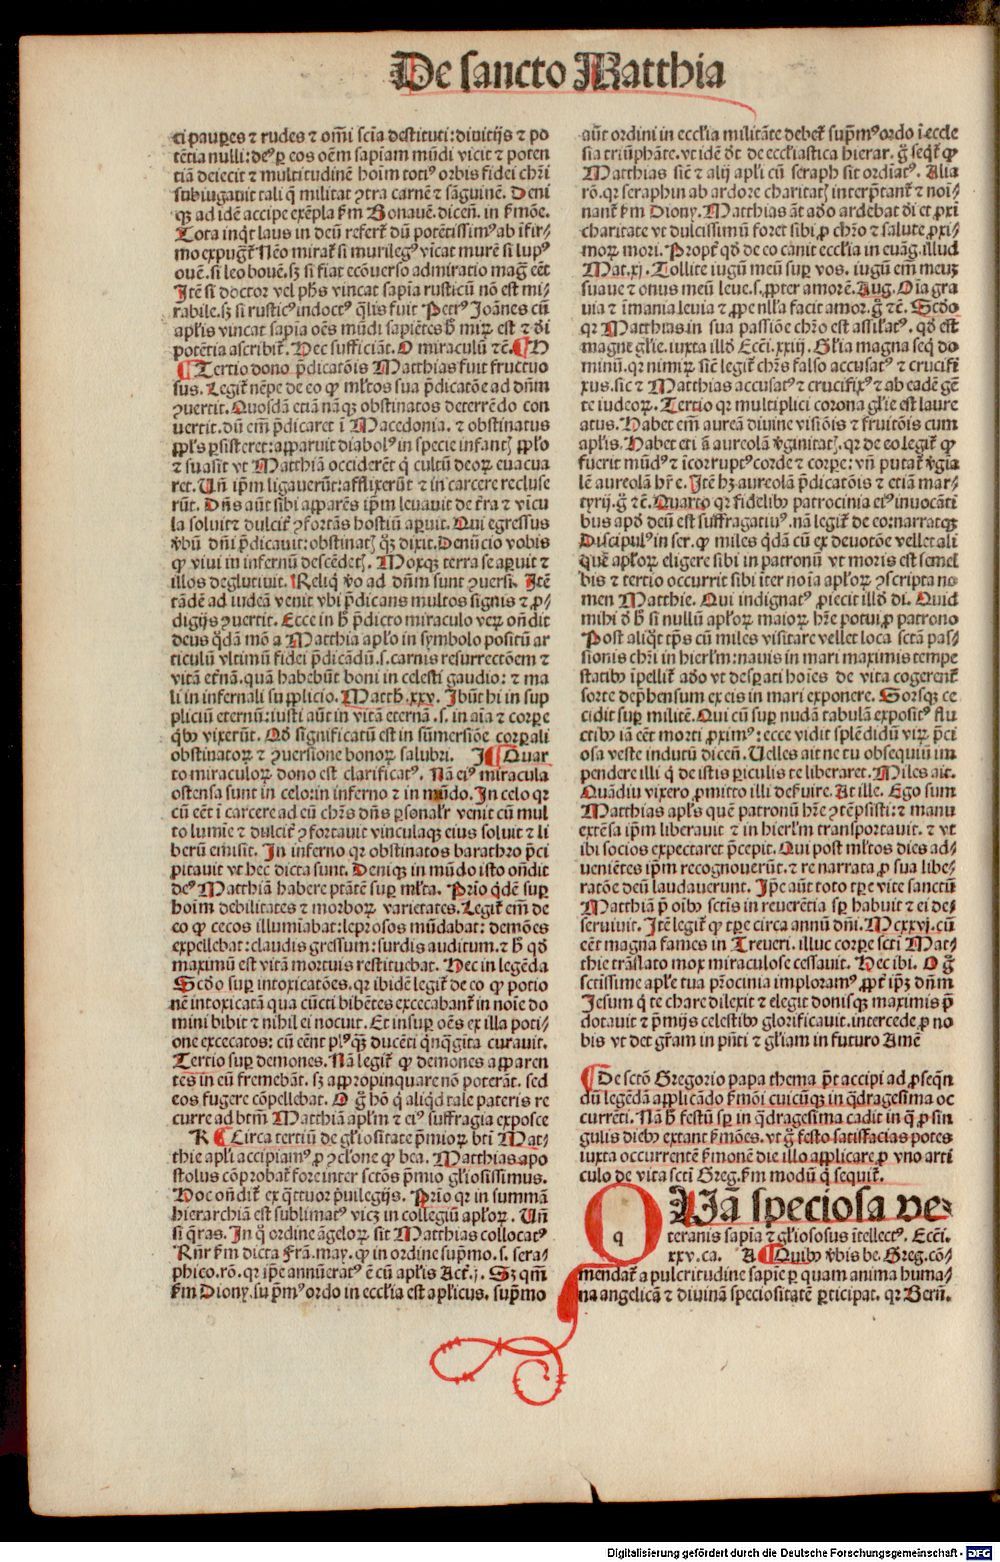 De sancto Matthia
ci paup̲es ⁊ rudes ⁊ om̄i scīa destituti: divitijs ⁊ po
tētia nulli: deꝰ ꝑ eos oēm sapiam mūdi vicit ⁊ poten
tiā deiecit ⁊ multitudinē hoīm totiꝰ orbis fidei chr̄i
subiugavit tali ꝙ militat ꝯtra carnē ⁊ sāguinē. Deni
qꝫ ad idē accipe exēpla ẜm Bonauē. dicen̄. in ẜmōe.
Tota inqͥt laus in deū refert̄ dū potētissimꝰ ab īfir⸗
mo expuḡt̄ Nēo mirat̄ si murilegꝰ vīcat murē si lupꝰ
ouē. si leo bouē. sꝫ si fiat ecōuerso admiratio maḡ eēt
Itē si doctor vel ph̄s vincat sapīa rusticū nō est mi⸗
rabile. sꝫ si rusticꝰ indoctꝰ q̄lis fuit Petrꝰ Joānes cū
apl̄is vincat sapīa oēs mūdi sapiētes h̄ mirꝝ est ⁊ d̄i
potētia ascribit̄. Hec sufficiāt. O miraculū ⁊c̄. ¶ H
¶ Tertio dono p̄dicatōis Matthias fuit fructuo
sus. Legit̄ nēpe de eo ꝙ ml̄tos sua p̄dicatōe ad dn̄m
ꝯuertit. Quosdā etiā nāqꝫ obstinatos deterrēdo con
uertit. dū em̄ p̄dicaret ī Macedonia. ⁊ obstinatus
ppl̄s ꝑsisteret: apparuit diabolꝰ in specie infantꝭ pplo
⁊ suasit vt Matthiā occiderēt q̇ cultū deoꝝ euacua
ret. Un̄ ip̄m ligauerūt: afflixerūt ⁊ in carcere recluse
rūt. Dn̄s aūt sibi apparēs ip̄m leuauit de t̄ra ⁊ vīcu
la soluit ⁊ dulcit̄ ꝯfortās hostiū aꝑuit. Qui egressus
v̄bū dn̄i p̄dicauit: obstinatꝭ qꝫ dixit. Denūcio vobis
ꝙ viui in infernū descēdetꝭ. Moxqꝫ terra se aꝑuit ⁊
illos deglutiuit. Reliq̇ v̄o ad dn̄m sunt ꝯuersi. Itē
tādē ad iudeā venit vbi p̄dicans multos signis ⁊ ꝓ⸗
digijs ꝯuertit. Ecce in h̄ p̄dicto miraculo verꝝ on̄dit
deus q̄dā mō a Matthia aplo in symbolo positū ar
ticulū vltimū fidei p̄dicādū. s. carnis resurrectōem ⁊
vitā et̄nā. quā habebūt boni in celesti gaudio: ⁊ ma
li in infernali supplicio. Matth̄. xxv. Ibūt hi in sup
pliciū eternū: iusti aūt in vitā eternā. s. in aīa ⁊ corꝑe
q̇bꝰ vixerūt. Qd̄ significatū est in sūmersiōe corꝑali
obstinatoꝝ ⁊ ꝯuersione bonoꝝ salubri. J ¶ Quar
to miraculoꝝ dono est clarificatꝰ. Nā eiꝰ miracula
ostensa sunt in celo: in inferno ⁊ in mūdo. In celo qꝛ
cū eēt ī carcere ad eū chr̄s dn̄s ꝑsonalr̄ venit cū mul
to lumīe ⁊ dulcit̄ ꝯfortauit vinculaqꝫ eius soluit ⁊ li
berū emisit. In inferno qꝛ obstinatos barathro p̄ci
pitauit vt hec dicta sunt. Deniqꝫ in mūdo isto on̄dit
deꝰ Matthiā habere ptātē suꝑ ml̄ta. Prīo q̇dē suꝑ
hoīm debilitates ⁊ morboꝝ varietates. Legit̄ em̄ de
eo ꝙ cecos illumiabat: leprosos mūdabat: demōes
expellebat: claudis gressum: surdis auditum. ⁊ h̄ qd̄
maximū est vitā mortuis restituebat. Hec in legēda
Scd̄o suꝑ intoxicatōes. qꝛ ibidē legit̄ de eo ꝙ potio
nē intoxicatā qua cūcti bibētes excecabant̄ in noīe do
mini bibit ⁊ nihil ei nocuit. Et insuꝑ oēs ex illa poti⸗
one excecatos: cū eēnt plꝰqꝫ ducēti q̇nq̄gīta curauit.
Tertio suꝑ demones. Nā legit̄ ꝙ demones apparen
tes in eū fremebāt. sꝫ appropinquare nō poterāt. sed
eos fugere cōpellebat. O ḡ hō q̇ aliqd̄ tale pateris re
curre ad btm̄ Matthiā apl̄m ⁊ eiꝰ suffragia exposce
K ¶ Circa tertiū de gl̄iositate p̄mioꝝ bt̄i Mat⸗
thie apl̄i accipiamꝰ ꝓ ꝯclōne ꝙ bea. Matthias apo
stolus cōprobat̄ fore inter sctōs p̄mio gl̄iosissimus.
Hoc on̄dit̄ ex q̄ttuor p̄uilegijs. Prīo qꝛ in summā
hierarchiā est sublimatꝰ vicꝫ in collegiū aploꝝ. Un̄
si q̄ras. In q̊ ordine āgeloꝝ sit Matthias collocatꝰ
Rn̄r ẜm dicta Frā. may. ꝙ in ordine sup̄mo. s. sera⸗
phico. rō. qꝛ ip̄e annūeratꝰ ē cū apl̄is Act̄. j. Sꝫ qm̄
ẜm Diony. sup̄mꝰ ordo in eccl̄ia est apl̄icus. sup̄mo
aūt ordini in eccl̄ia militāte debet̄ sup̄mꝰ ordo ī eccle
sia triūphāte. vt idē d̄t de eccl̄iastica hierar. ḡ seqͥt̄ ꝙ
Matthias sic̄ ⁊ alij apl̄i cū seraph sit ordīatꝰ. Alia
rō. qꝛ seraphin ab ardore charitatꝭ interp̄tant̄ ⁊ noī⸗
nant̄ ẜm Diony. Matthias āt ado ardebat di et ꝓxi
charitate vt dulcissimū foret sibi ꝓ chr̄o ⁊ salute ꝓxi⸗
moꝝ mori. Propt̄ qd̄ de eo canit eccl̄ia in euāg. illud
Mat. xj. Tollite iugū meū suꝑ vos. iugū em̄ meuꝫ
suaue ⁊ onus meū leue. s. ꝓpter amorē. Aug. Oīa gra
uia ⁊ īmania leuia ⁊ ꝓpe nlla facit amor. ḡ ⁊c̄. Scd̄o
qꝛ Matthias in sua passiōe chr̄o est assilatꝰ. qd̄ est̄
magne gl̄ie. iuxta illd̄ Ecc̄i. xxiij. Gl̄ia magna seq̇ do
minū. qꝛ nimiꝝ sic̄ legit̄ chr̄s falso accusatꝰ ⁊ crucifi
xus. sic ⁊ Matthias accusatꝰ ⁊ crucifixꝰ ⁊ ab eadē gē
te iudeoꝝ. Tertio qꝛ multiplici corona gl̄ie est laure
atus. Habet em̄ aureā diuine visiōis ⁊ fruitōis cum
apl̄is. Habet eti ā aureolā v̄ginitatꝭ. qꝛ de eo legit̄ ꝙ
fuerit mūdꝰ ⁊ īcorruptꝰ corde ⁊ corꝑe: vn̄ putat̄ v̄gia
lē aureolā hr̄e. Itē hꝫ aureolā p̄dicatōis ⁊ etiā mar⸗
tyrij. ḡ ⁊c̄. Quarto qꝛ fidelibꝰ patrocinia eiꝰ inuocāti
bus apd̄ deū est suffragatiuꝰ. nā legit̄ de eo: narratqꝫ
Discipulꝰ in ser. ꝙ miles q̇dā cū ex deuotōe vellet ali
quē aploꝝ eligere sibi in patronū vt moris est semel
bis ⁊ tertio occurrit sibi īter noīa aploꝝ ꝯscripta no
men Matthie. Qui indignatꝰ ꝓiecit illd̄ di. Quid
mihi d̄ h̄ si nullū aploꝝ maioꝝ hr̄e potui ꝓ patrono
Post aliqͥt tp̄s cū miles visitare vellet loca sctā pas⸗
sionis chr̄i in hierl̄m: nauis in mari maximis tempe
statibꝰ īpellit̄ ado vt desꝑati hoīes de vita cogerent̄
sorte dep̄hensum ex eis in mari exponere. Sorsqꝫ ce
cidit suꝑ militē. Qui cū suꝑ nudā tabulā expositꝰ flu
ctibꝰ iā eēt morti ꝓximꝰ: ecce vidit splēdidū viꝝ p̄ci
osa veste indutū dicen̄. Uelles ait ne tu obsequiū im
pendere illi q̇ de istis ꝑiculis te liberaret. Miles ait.
Quādiu vixero ꝓmitto illi deẜuire. At ille. Ego sum
Matthias apl̄s quē patronū hr̄e ꝯtēpsisti: ⁊ manu
extēsa ip̄m liberauit ⁊ in hierl̄m transportauit. ⁊ vt
ibi socios expectaret p̄cepit. Qui post ml̄tos dies ad⸗
ueniētes ip̄m recognouerūt. ⁊ re narrata ꝓ sua libe⸗
ratōe deū laudauerunt. Ip̄e aūt toto tꝑe vite sanctū
Matthiā p̄ oībꝰ sctīs in reuerētia sꝑ habuit ⁊ ei de⸗
seruiuit. Itē legit̄ ꝙ tꝑe circa annū dn̄i. Mcxxvj. cū
eēt magna fames in Treueri. illuc corꝑe scti Mat⸗
thie trāslato mox miraculose cessauit. Hec ibi. O ḡ
sctissime aple tua prōcinia imploramꝰ ꝓpt̄ ip̄ꝫ dn̄m
Jesum q̇ te chare dilexit ⁊ elegit donisqꝫ maximis p̄
dotauit ⁊ p̄mijs celestibꝰ glorificauit. intercede ꝓ no
bis vt det gr̄am in pn̄ti ⁊ gl̄iam in futuro Amē
¶ De sctō Gregorio papa thema p̄t accipi ad ꝓseqn̄
dū legēdā applicādo ẜmōi cuicūqꝫ in q̇dragesima oc
currēti. Nā h̄ festū sꝑ in q̇dragesima cadit in q̄ ꝓ sin
gulis diebꝰ extant ẜmōes. vt ḡ festo satisfacias potes
iuxta occurrentē ẜmonē die illo applicare ꝓ vno arti
culo de vita scti Greg. ẜm modū q̇ sequit̄.
q
QUā speciosa ve⸗
teranis sapīa ⁊ gl̄iososus ītellectꝰ. Ecc̄i.
xxv. ca. A ¶ Quibꝰ v̄bis be. Greg. cō⸗
mendat̄ a pulcritudine sapīe ꝑ quam anima huma⸗
na angelicā ⁊ diuinā speciositatē ꝑticipat. qꝛ Bern̄.
Digitalisierung gefördert durch die Deutsche Forschungsgemeinschaft - DFG